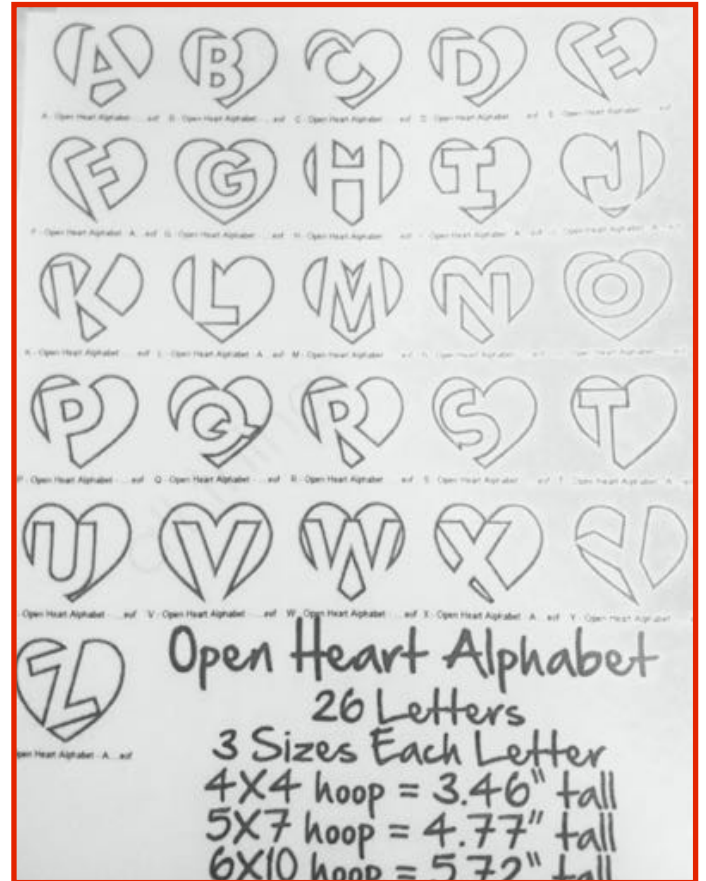 A B C D E
A - Open Heart Alphabet - ... .eof B - Open Heart Alphabet - ... .eof C - Open Heart Alphabet - ... .eof D - Open Heart Alphabet - ... .eof E - Open Heart Alphabet - ... .eof
F G H I J
F - Open Heart Alphabet - A... .eof G - Open Heart Alphabet - ... .eof H - Open Heart Alphabet - ... .eof Open Heart Alphabet - A... .eof Open Heart Alphabet - A...
K L M N O
K - Open Heart Alphabet - ... .eof L - Open Heart Alphabet - A... .eof M - Open Heart Alphabet - ... .eof N - Open Heart Alphabet - ... .eof Open Heart Alphabet
P Q R S T
P - Open Heart Alphabet - ... .eof Q - Open Heart Alphabet - ... .eof R - Open Heart Alphabet - ... .eof S - Open Heart Alphabet - ... .eof T - Open Heart Alphabet - A...
U V W X Y
- Open Heart Alphabet - ... .eof V - Open Heart Alphabet - ... .eof W - Open Heart Alphabet - ... .eof X - Open Heart Alphabet - A... .eof Y - Open Heart Alphabet
Z
Open Heart Alphabet - A... .eof
Open Heart Alphabet
26 Letters
3 Sizes Each Letter
4X4 hoop = 3.46" tall
5X7 hoop = 4.77" tall
6X10 hoop = 5.72" tall